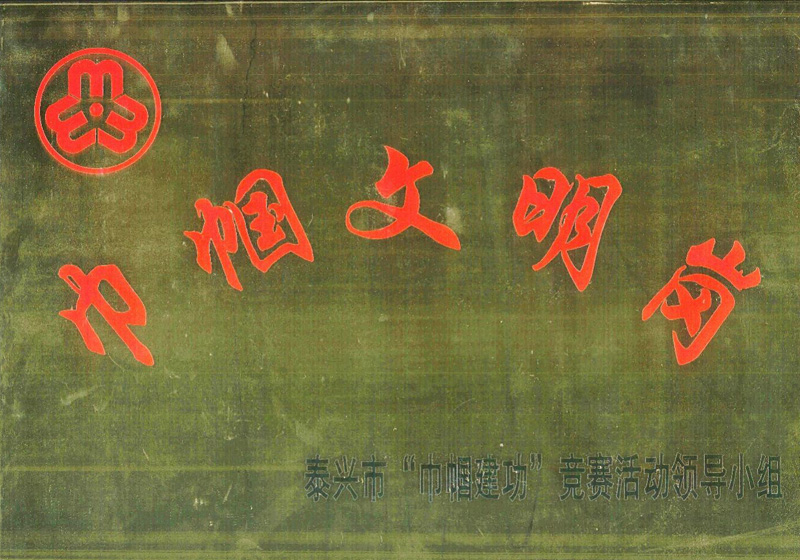 巾帼文明岗
泰兴市“巾帼建功”竞赛活动领导小组